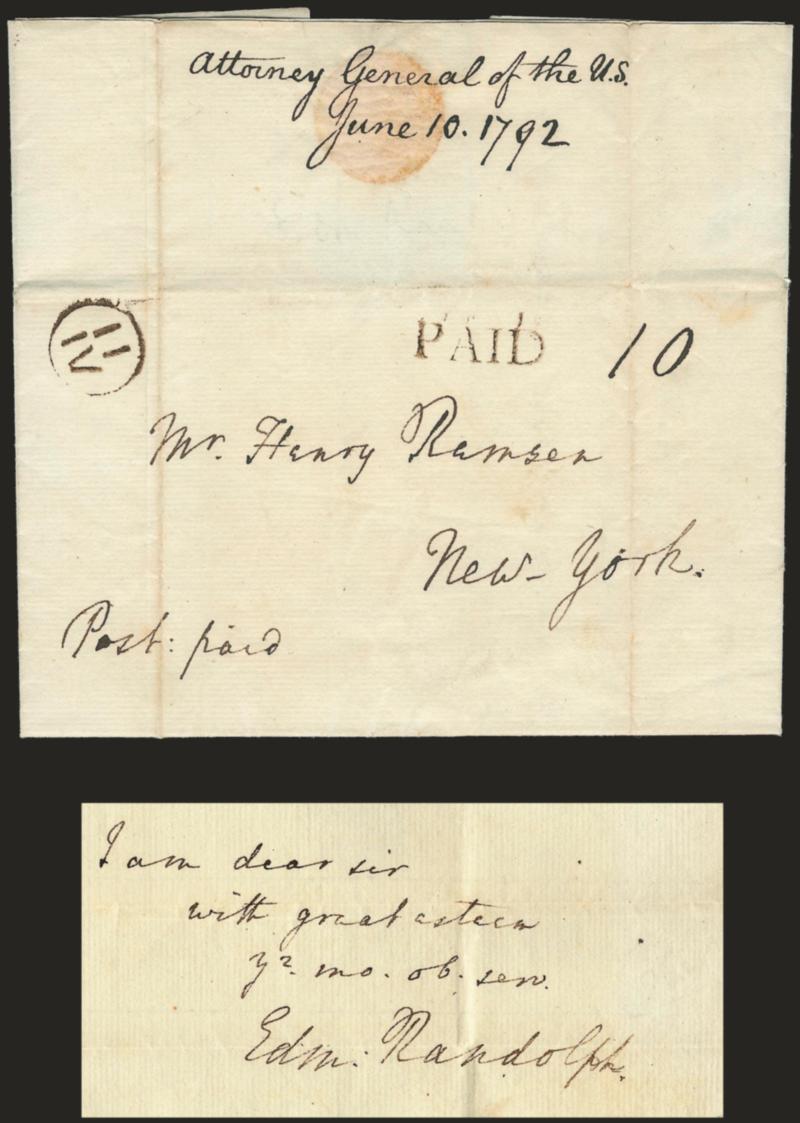 Attorney General of the U.S.
June 10. 1792
11 IV
PAID 10
Mr. Henry Remsen
New-York.
Post: paid
I am dear sir
with great esteem
yr. mo. ob. serv.
Edm: Randolph.